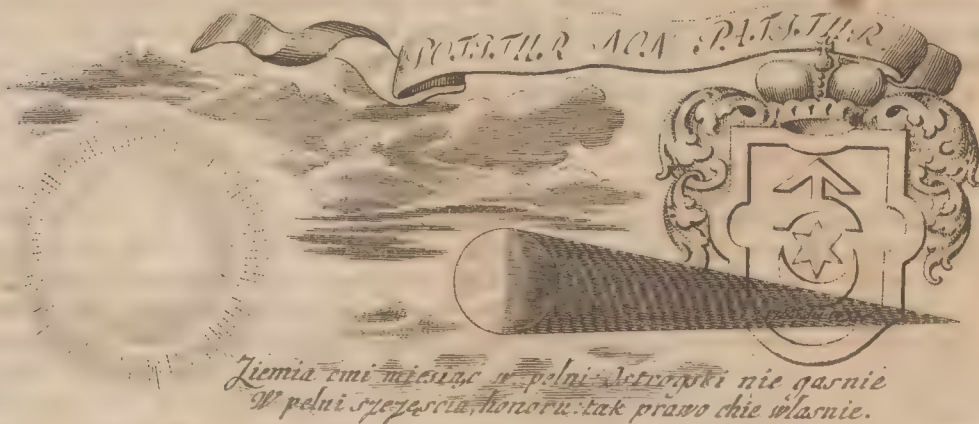 POTITUR NON PATITUR
Ziemia cmi miesiąc w pełni Ostrogski nie gasnie
W pełni szczęscia, honoru: tak prawo chie własnie.